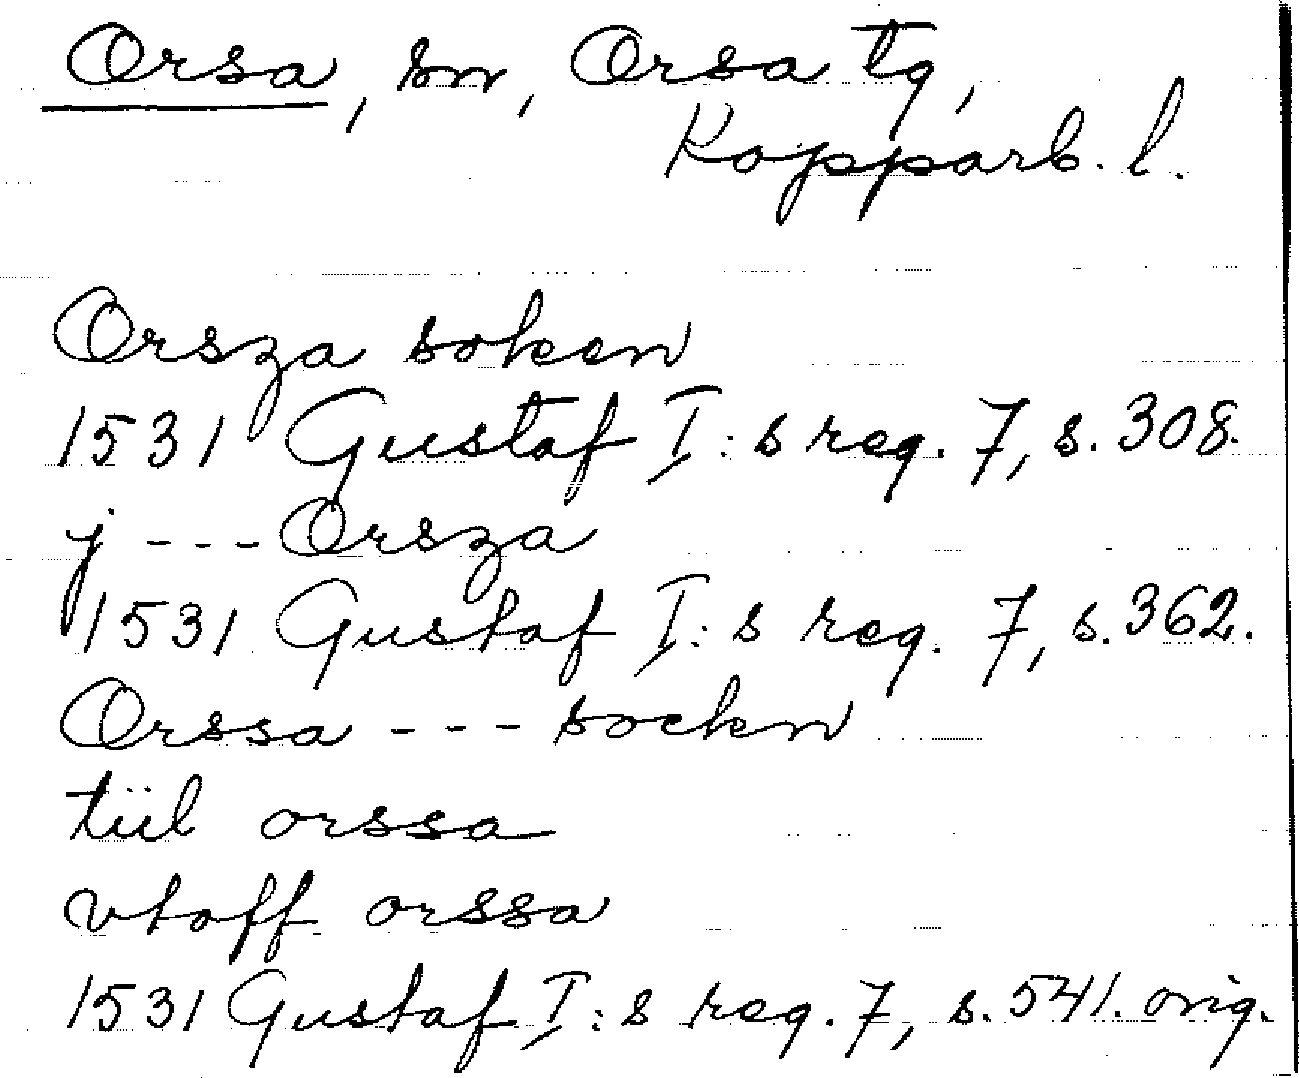 Orsa, sn, Orsa tg,
Kopparb. l.
Orsza soken
1531 Gustaf I:s reg. 7, s. 308.
j --- Orsza
1531 Gustaf I:s reg. 7, s. 362.
Orssa --- sockn
tiil orssa
vtoff orssa
1531 Gustaf I:s reg. 7, s. 541. orig.